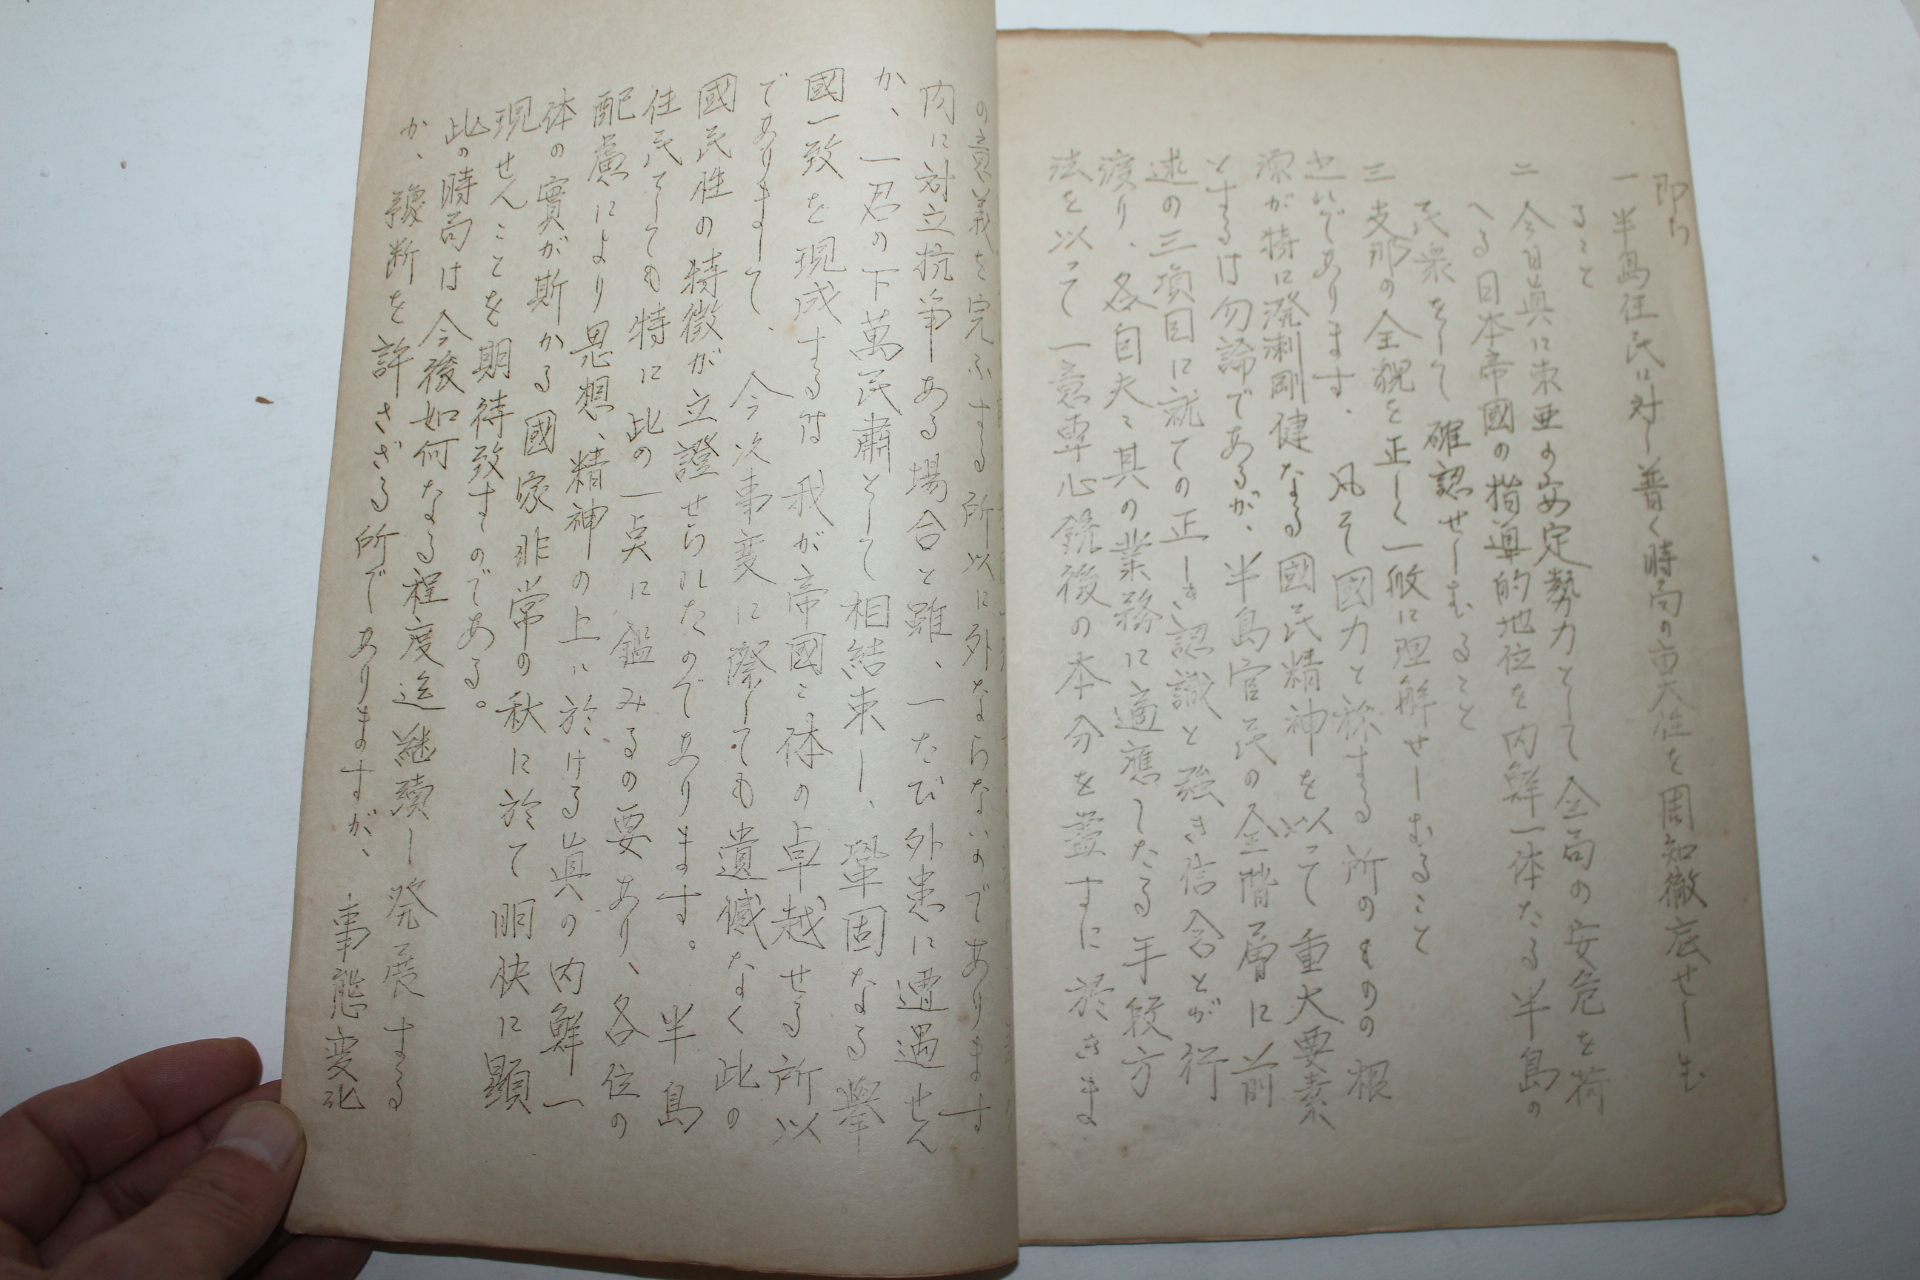 即ち
一 半島住民に対し普く時局の重大性を周知徹底せしむ
ること
二 今日眞に東亜の安定勢力として全局の安危を荷
へる日本帝國の指導的地位を内鮮一体たる半島の
民衆をして確認せしむること
三 支那の全貌を正しく一般に理解せしむること
之れであります。凡そ國力と称する所のものの根
源が特に溌溂剛健なる國民精神を以って重大要素
とするは勿論であるが、半島官民の全階層に前
述の三項目に就ての正しき認識と強き信念とが行
渡り、各自夫々其の業務に適應したる手段方
法を以って一意専心銃後の本分を盡すに於きま
の意義を完ふする所以に外ならないのであります
内に対立抗爭ある場合と雖、一たび外患に遭遇せん
か、一君の下萬民肅として相結束し、鞏固なる擧
國一致を現成するは我が帝國々体の卓越せる所以
でありまして、今次事変に際しても遺憾なく此の
國民性の特徴が立證せられたのであります。半島
住民としても特に此の一点に鑑みるの要あり、各位の
配慮により思想、精神の上に於ける眞の内鮮一
体の實が斯かる國家非常の秋に於て明快に顯
現せんことを期待致すのである。
此の時局は今後如何なる程度迄継續し発展する
か、豫断を許さざる所でありますが、事態変化